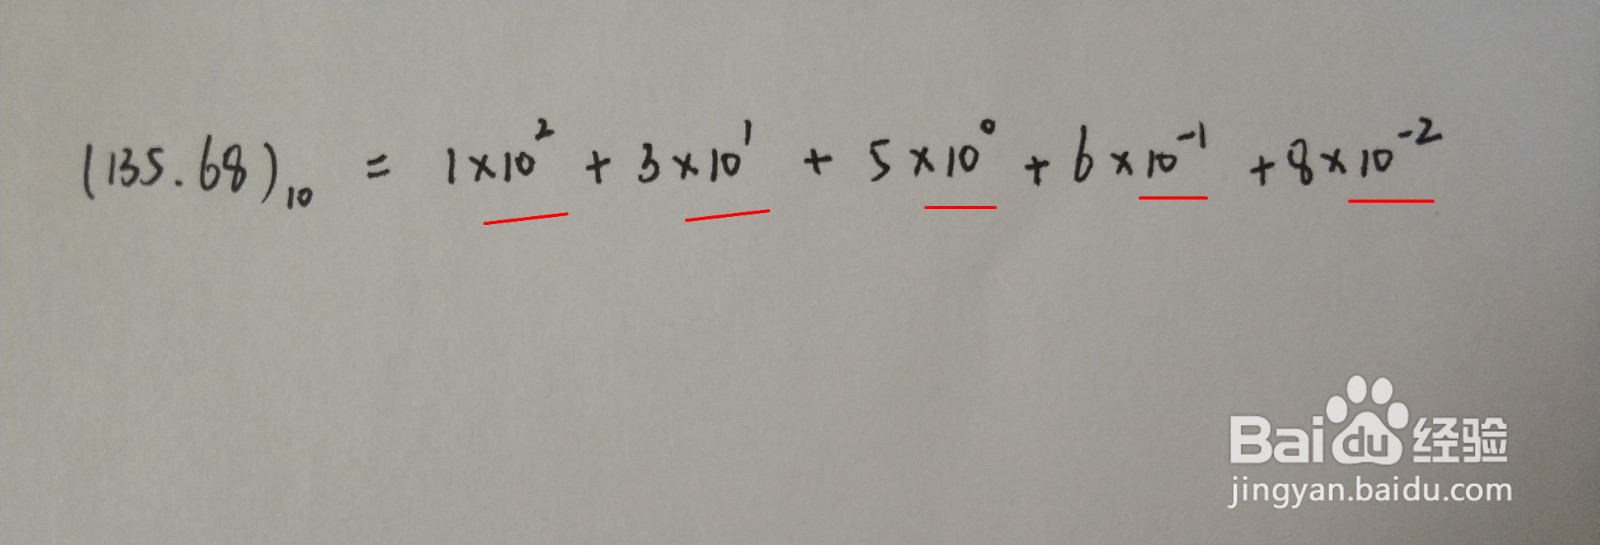 (135.68)₁₀ = 1×10² + 3×10¹ + 5×10⁰ + 6×10⁻¹ + 8×10⁻²
Bai du 经验
jingyan.baidu.com